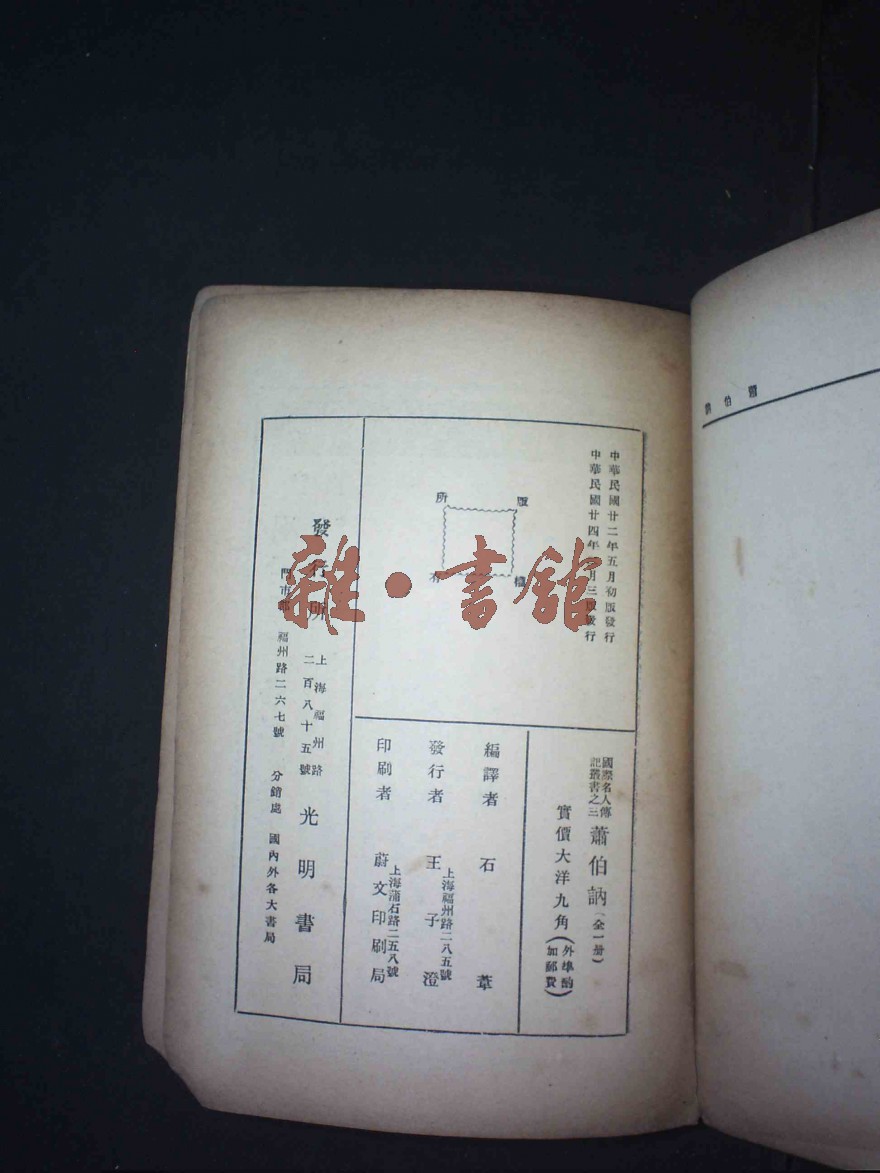 蕭伯訥
中華民國廿二年五月初版發行
中華民國廿四年 月三版發行
版權所有
國際名人傳
記叢書之三
蕭伯訥(全一册)
實價大洋九角(外埠酌加郵費)
編譯者 石葦
發行者 王子澄
上海福州路二八五號
印刷者 蔚文印刷局
上海蒲石路二五八號
發行所 上海福州路二百八十五號 光明書局
門市部 福州路二六七號 分銷處 國內外各大書局
雜·書館